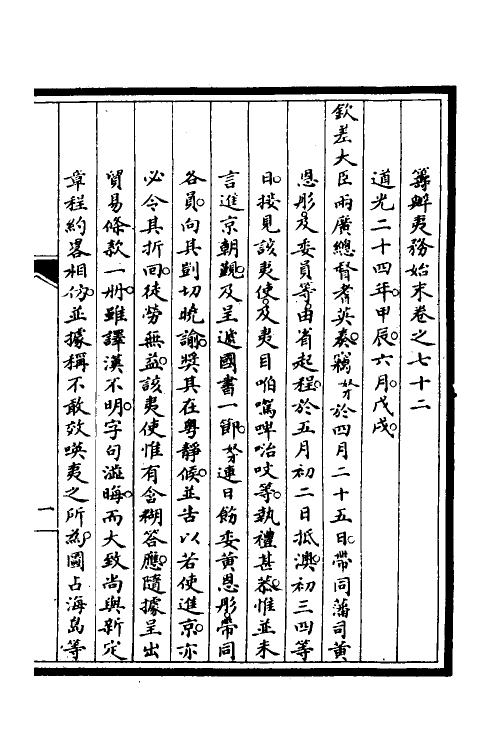 籌辦夷務始末卷之七十二
道光二十四年甲辰六月戊戌
欽差大臣兩廣總督耆英奏竊奴才於四月二十五日帶同藩司黃
恩彤及委員等由省起程於五月初二日抵澳初三四等
日接見該夷使及夷目咱嗎啤咭吱等執禮甚恭惟並未
言進京朝覲及呈遞國書一節奴才連日飭委黃恩彤帶同
各員向其剴切曉諭獎其在粵靜候並告以若使進京亦
必令其折回徒勞無益該夷使惟有含糊答應隨據呈出
貿易條款一冊雖譯漢不明字句澁晦而大致尚與新定
章程約畧相仿並據稱不敢效𠸄夷之所為圖占海島等
一